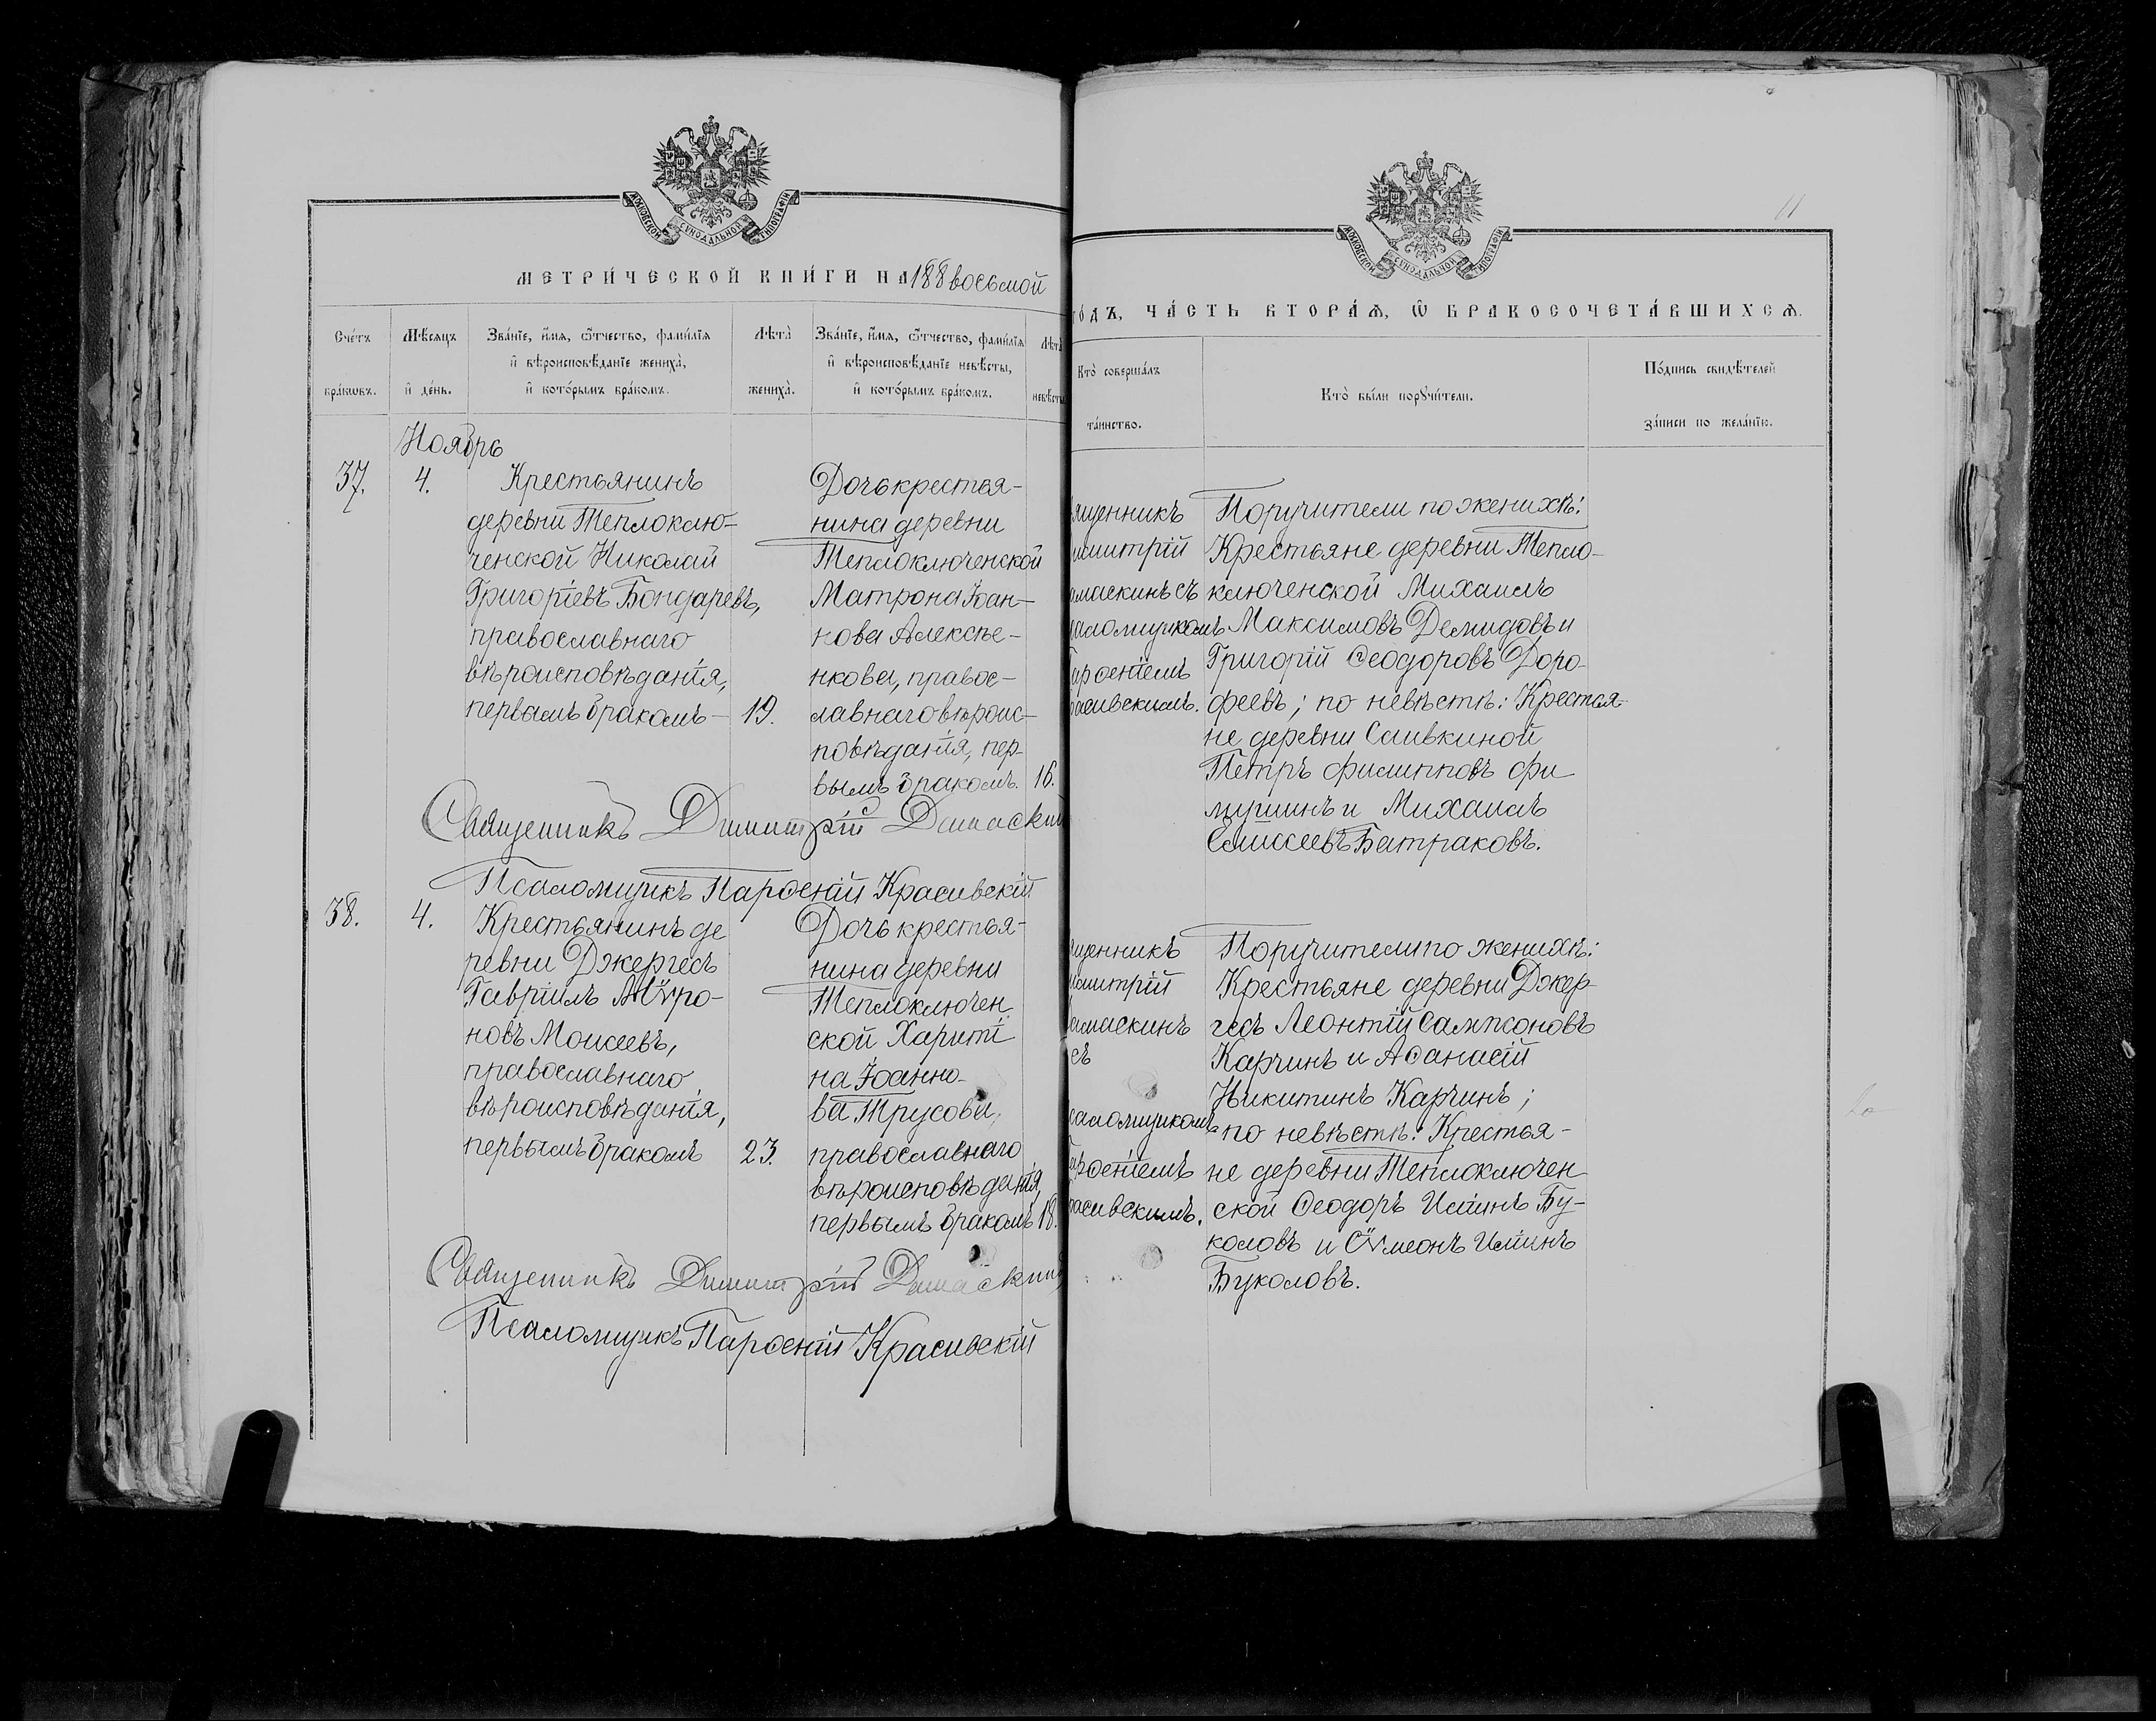 МОСКОВСКОЙ СѴНОДАЛЬНОЙ ТИПОГРАФІИ
МЕТРИ́ЧЕСКОЙ КНИ́ГИ НА 188 восьмой
Сче́тъ
бра́ковъ.
Мѣ́сяцъ
и҆ де́нь.
Зва́нїе, и҆́мя, ѻ҆́тчество, фами́лїѧ
и҆ вѣроисповѣ́данїе жениха̀,
и҆ кото́рымъ бра́комъ.
Лѣта̀
жениха̀.
Зва́нїе, и҆́мя, ѻ҆́тчество, фами́лїѧ
и҆ вѣроисповѣ́данїе невѣ́сты,
и҆ кото́рымъ бра́комъ.
Лѣта̀
невѣ́сты
Ноябрь
37.
4.
Крестьянинъ
деревни Теплоклю-
ченской Николай
Григоріевъ Бондаревъ,
православнаго
вѣроисповѣданія,
первымъ бракомъ-
19.
Дочь крестья-
нина деревни
Теплоключенской
Матрона Іоан-
нова Алексѣе-
нкова, правос-
лавнаго вѣроис-
повѣданія, пер-
вымъ бракомъ.
16.
Священникъ Димитрій Дамаскин
Псаломщикъ Парѳеній Красивскій
38.
4.
Крестьянинъ де
ревни Джергесъ
Гавріилъ Мѵро-
новъ Моисеевъ,
православнаго
вѣроисповѣданія,
первымъ бракомъ
23.
Дочь крестья-
нина деревни
Теплоключен
ской Харити
на Іоанно-
ва Трусова,
православнаго
вѣроисповѣданія,
первымъ бракомъ
18.
Священникъ Димитрій Дамаскин
Псаломщикъ Парѳеній Красивскій
МОСКОВСКОЙ СѴНОДАЛЬНОЙ ТИПОГРАФІИ
11
го́дъ, ЧА́СТЬ ВТОРА́Ѧ, Ѽ БРАКОСОЧЕТА́ВШИХСѦ.
Кто̀ соверша́лъ
та́инство.
Кто̀ бы́ли порꙋчи́тели.
По́дпись свидѣ́телей
за́писи по жела́нїю.
ященникъ
имитрій
амаскинъ съ
саломщикомъ
Парѳеніемъ
расивскимъ.
Поручители по женихѣ:
Крестьяне деревни Тепло-
ключенской Михаилъ
Максимовъ Демидовъ и
Григорій Ѳеодоровъ Доро-
феевъ; по невѣстѣ: Крестья-
не деревни Сливкиной
Петръ Филипповъ Фи
мушинъ и Михаилъ
Елисеевъ Батраковъ.
ященникъ
имитрій
амаскинъ
съ
саломщикомъ
арѳеніемъ
расивскимъ.
Поручители по женихѣ:
Крестьяне деревни Джер-
гесъ Леонтій Сампсоновъ
Карчинъ и Аѳанасій
Никитинъ Карчинъ;
по невѣстѣ: Крестья-
не деревни Теплоключен
ской Ѳеодоръ Ильинъ Бу-
коловъ и Сѵмеонъ Ильинъ
Буколовъ.